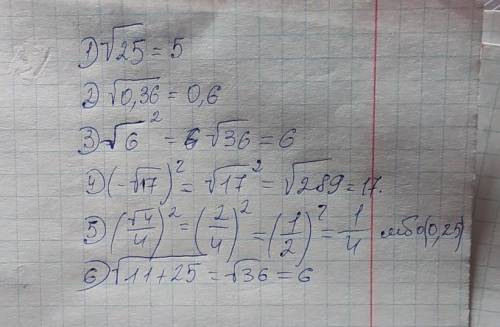 1) √25 = 5
2) √0,36 = 0,6
3) √6² = √36 = 6
4) (-√17)² = √17² = √289 = 17.
5) (√4/4)² = (2/4)² = (1/2)² = 1/4 либо (0,25)
6) √11+25 = √36 = 6